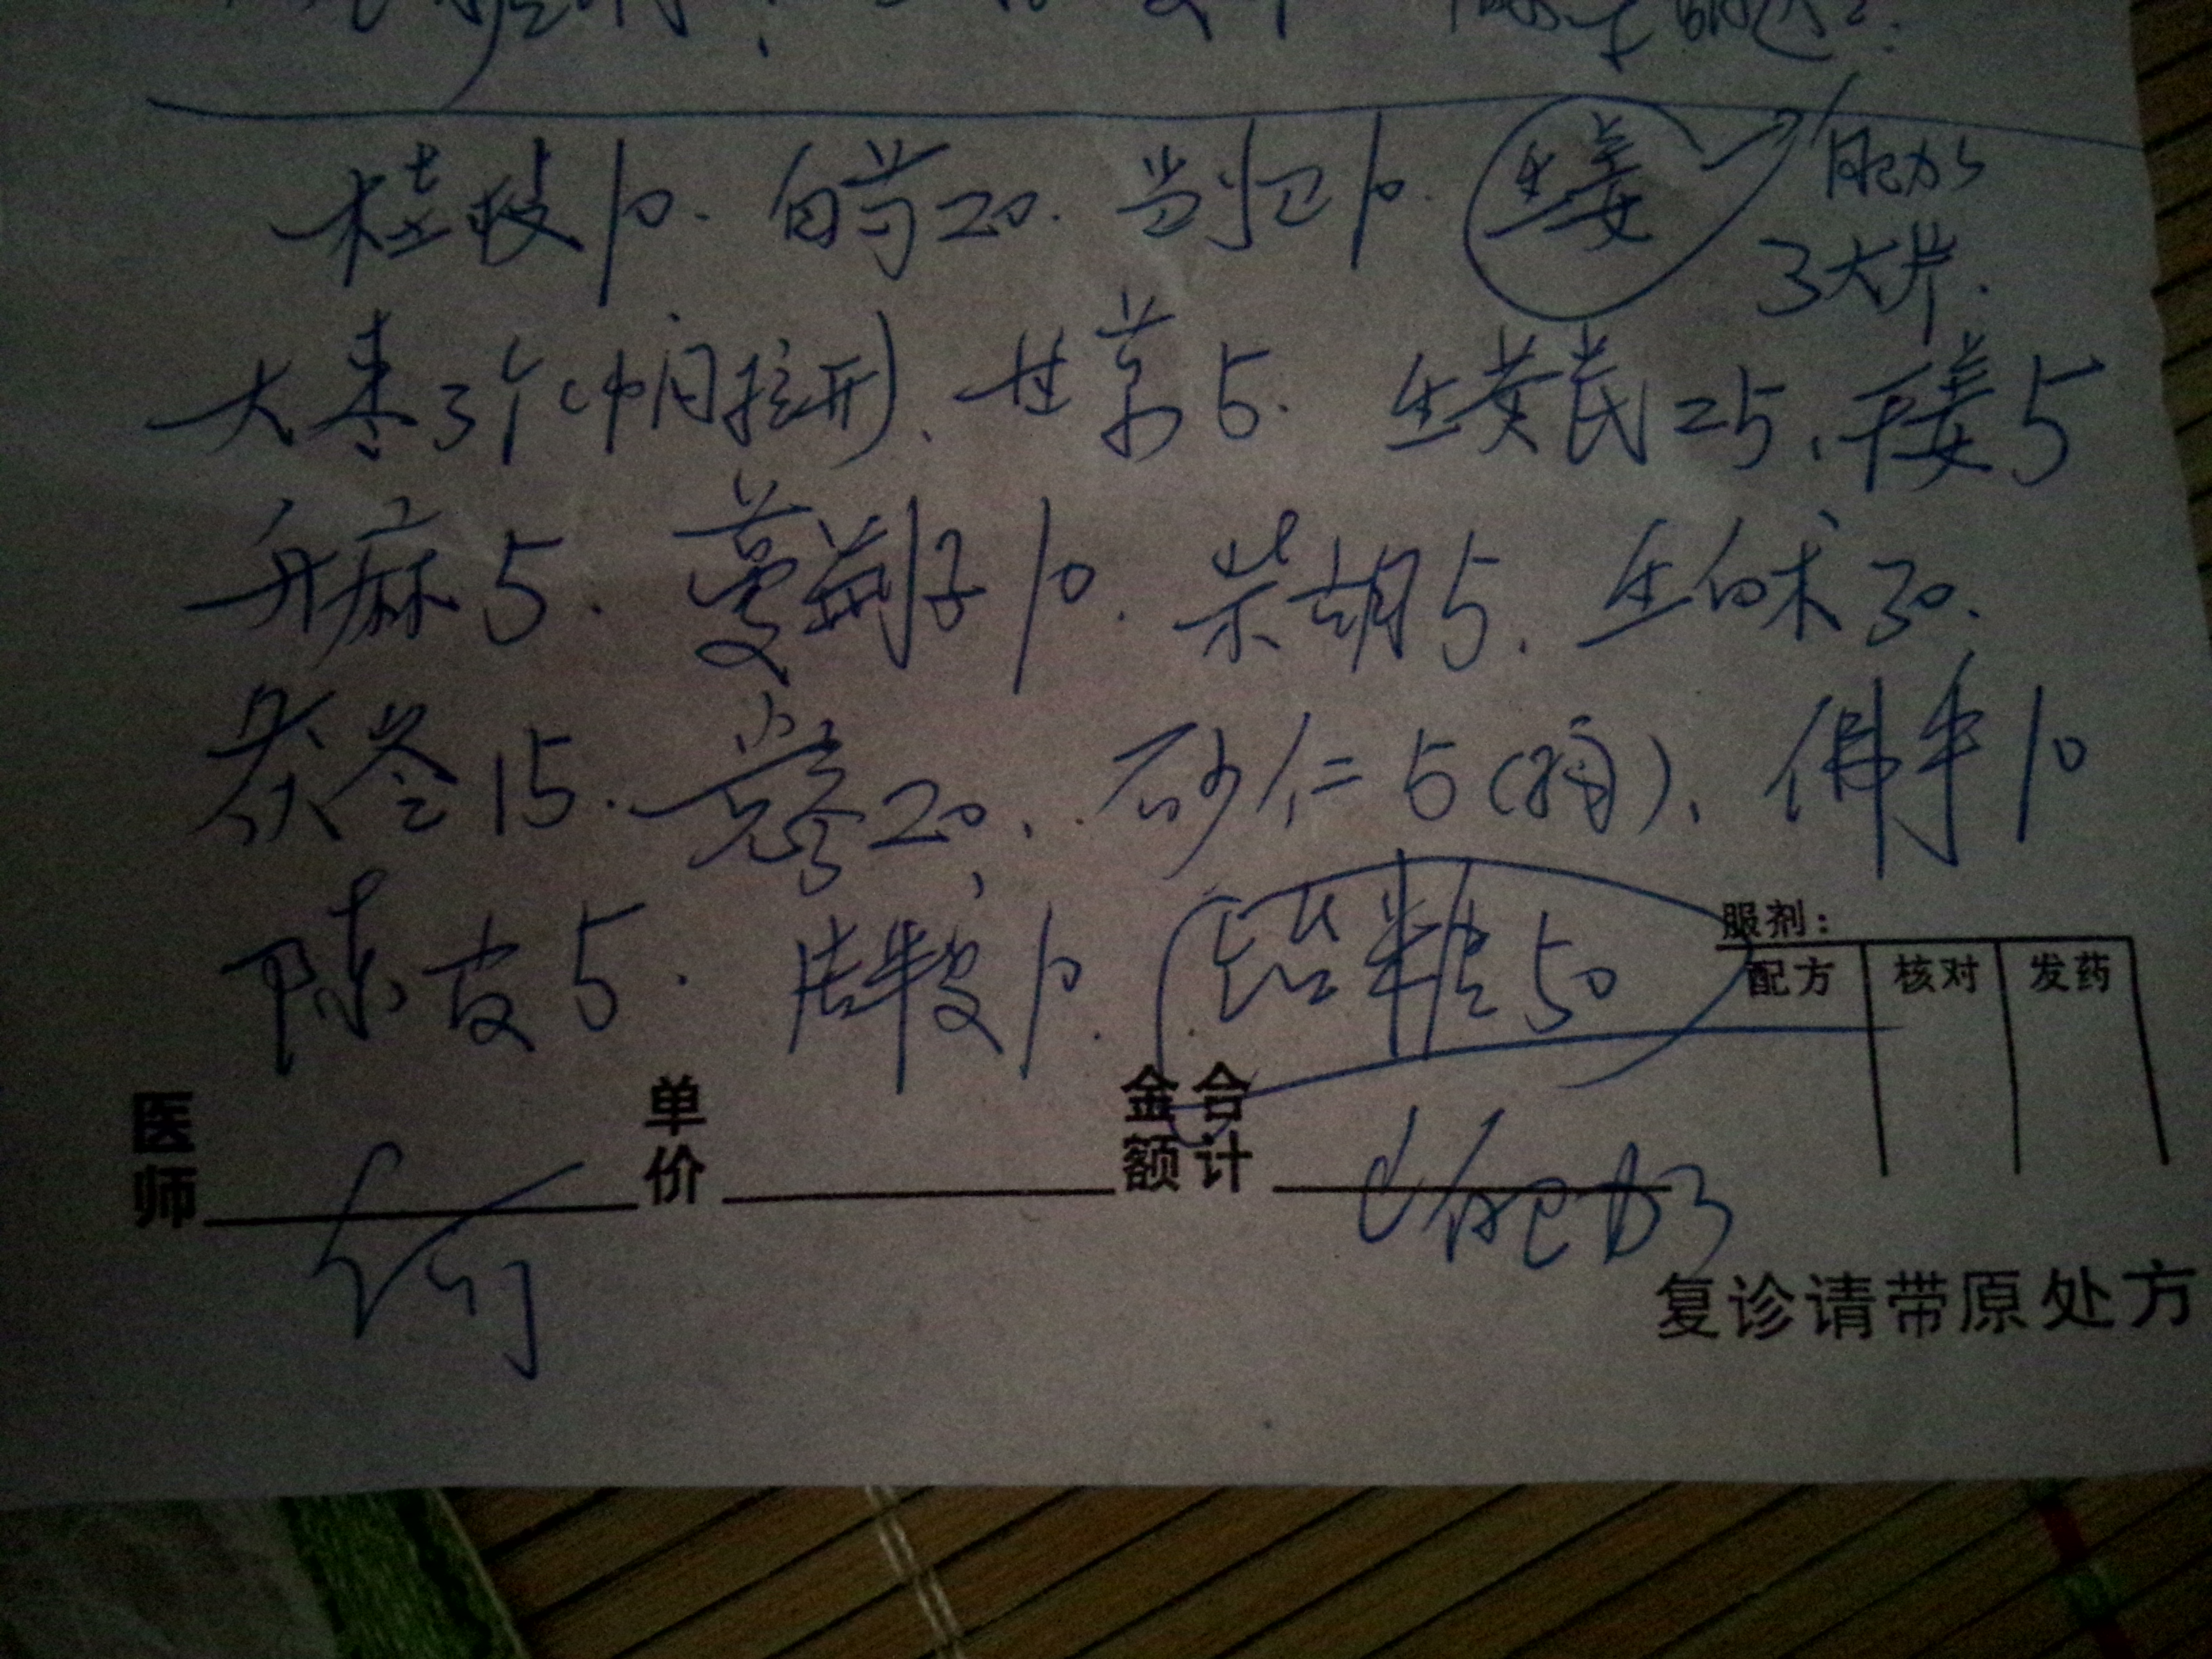 桂枝10. 白芍20. 当归10. 生姜 自己加
3大片.
大枣3个(帕拉形)、甘草5. 生黄芪25、干姜5
升麻5. 蔓荆子10. 柴胡5. 生白术30.
茯苓15. 党参20、砂仁5(捣)、佛手10
陈皮5. 10. 饴糖50
服剂:
配方 核对 发药
医师 单价 金额合计
自己加
复诊请带原处方